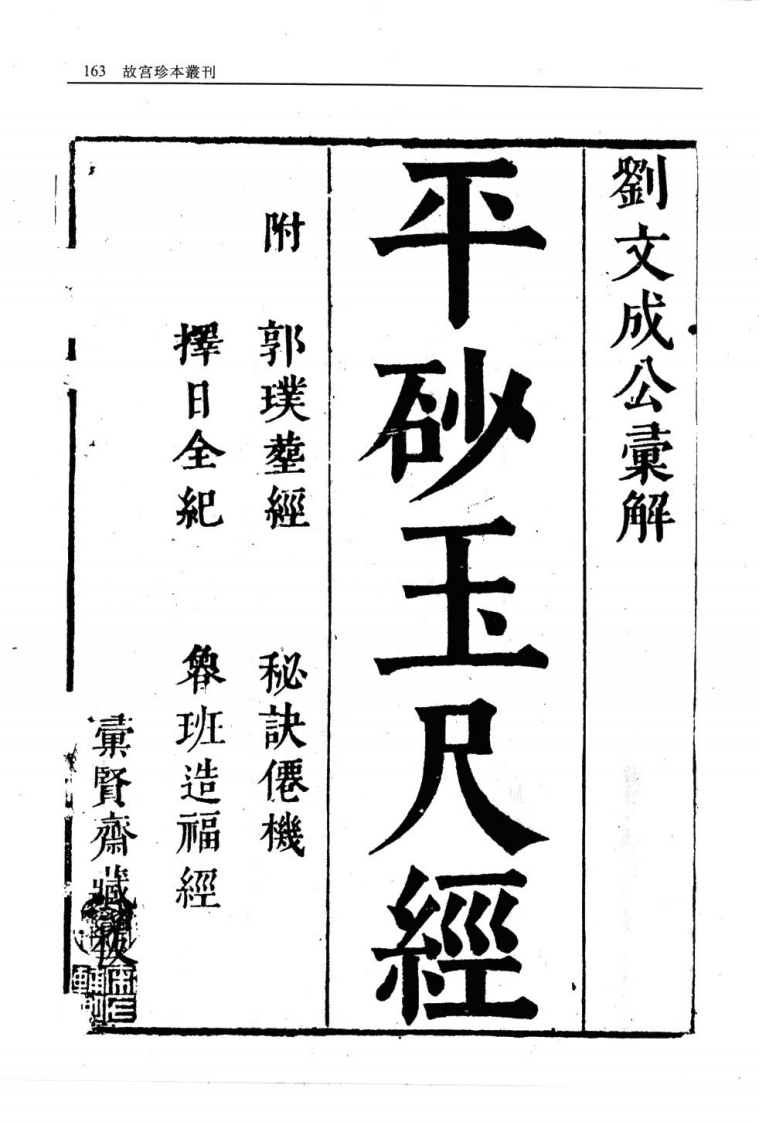 163 故宮珍本叢刊
劉文成公彚解
平砂玉尺經
附 郭璞塟經 秘訣僊機
擇日全紀 魯班造福經
彚賢齋藏板